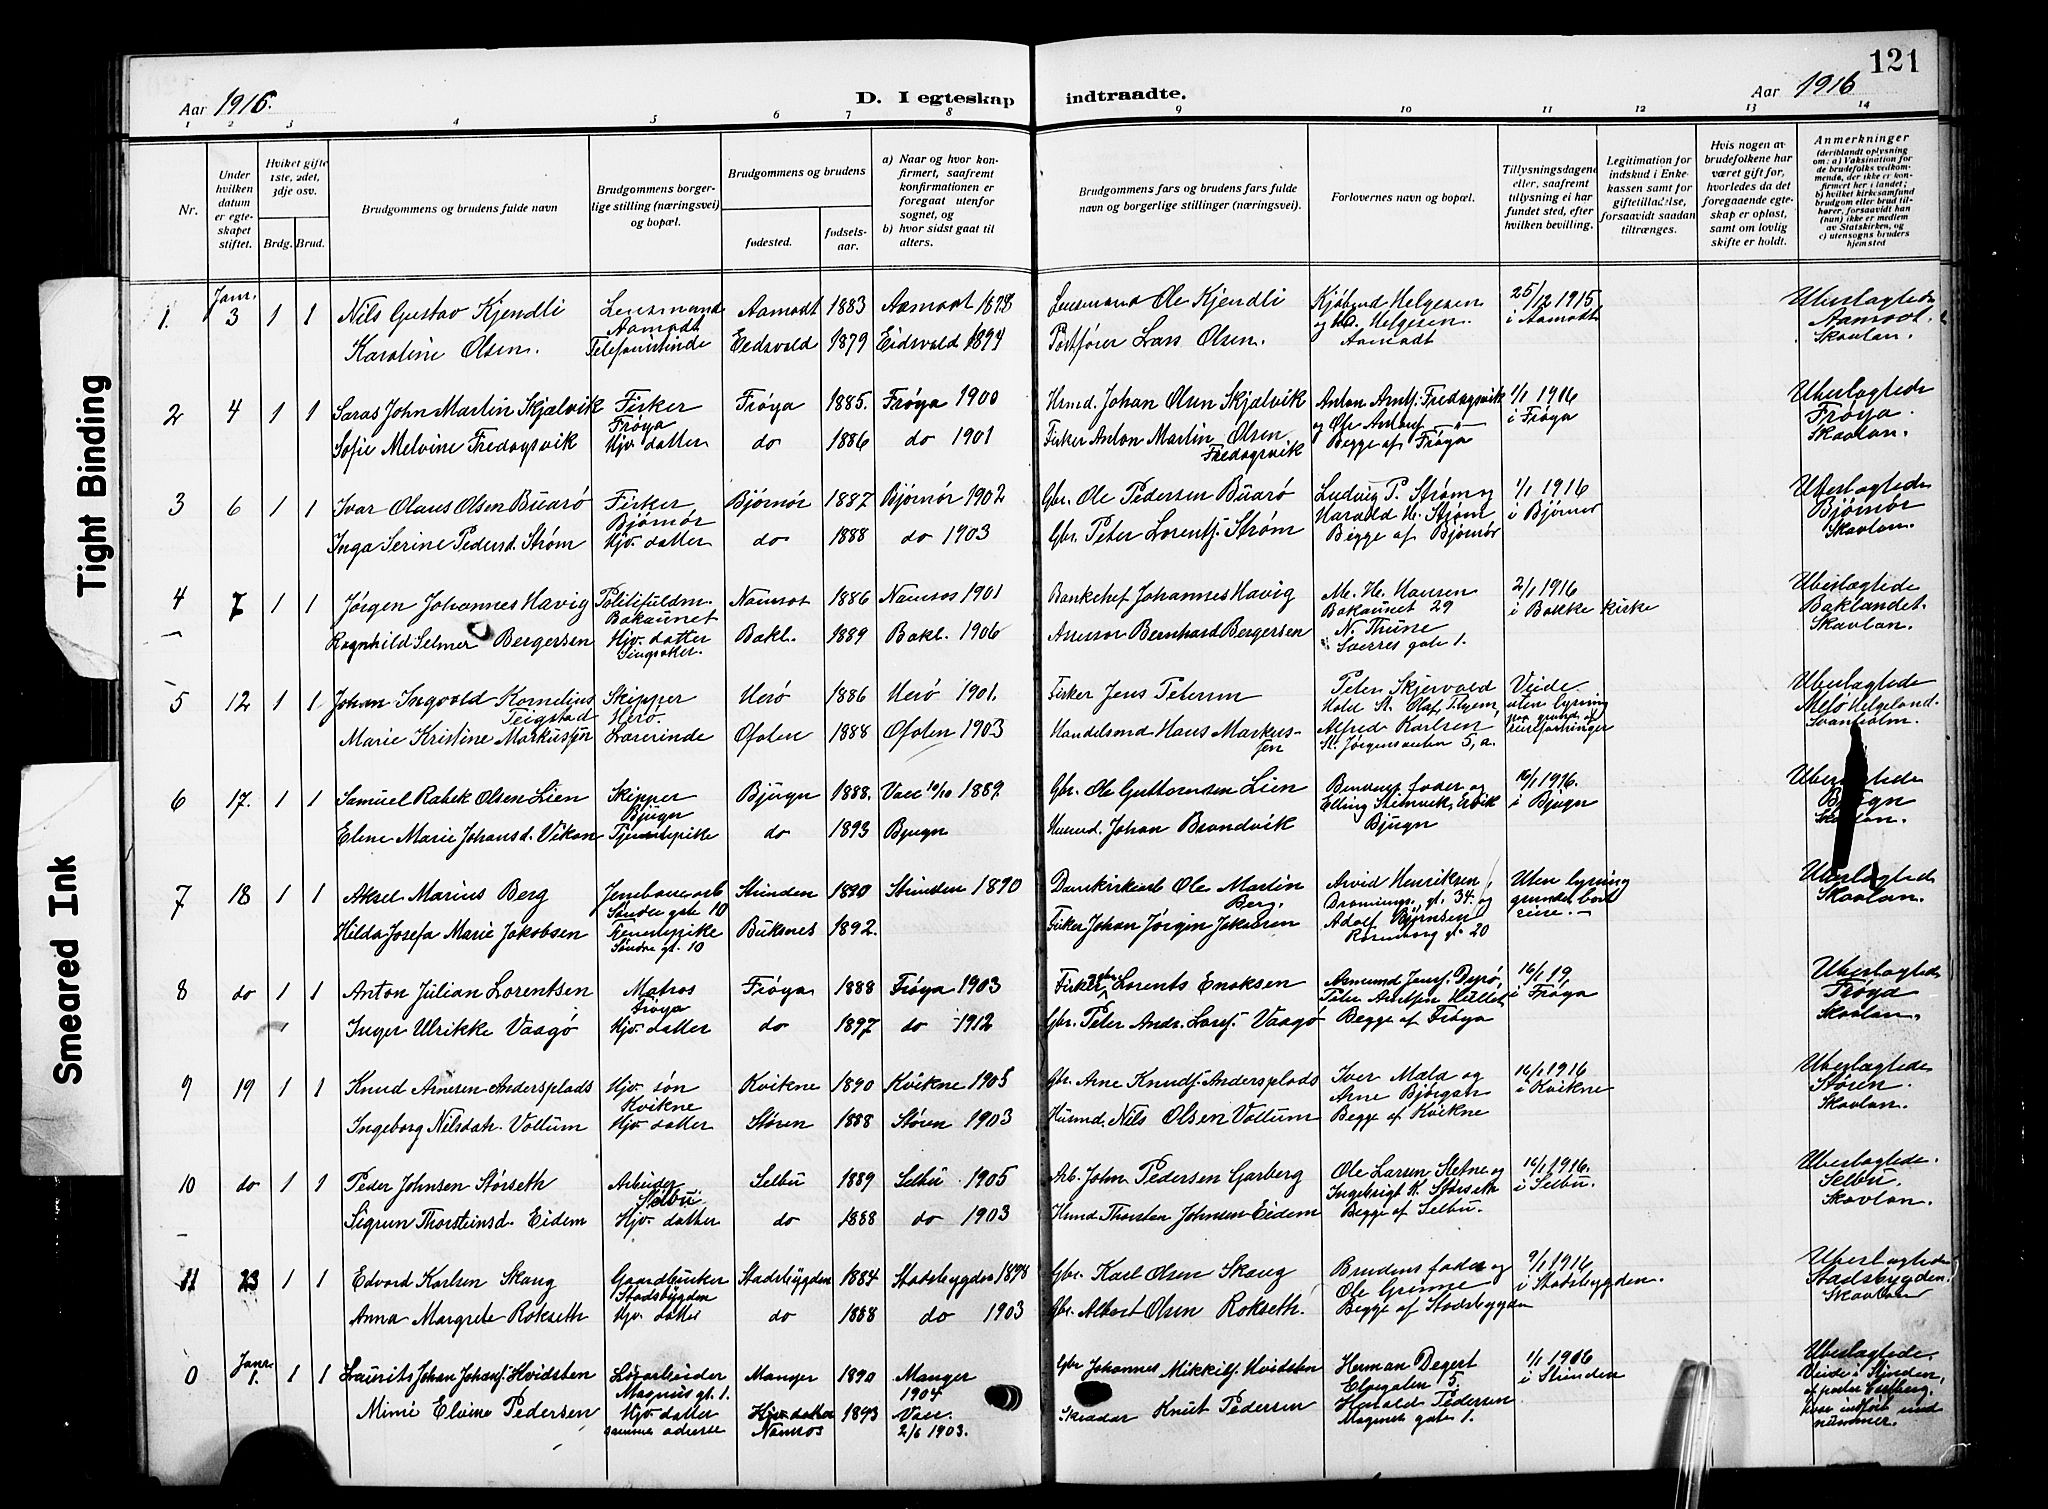 121
Aar 1916.
D. I egteskap indtraadte.
Aar 1916
1 2 3 4 5 6 7 8 9 10 11 12 13 14
Nr.
Under hvilken datum er egteskapet stiftet.
Hvilket gifte 1ste, 2det, 3dje osv.
Brdg. Brud.
Brudgommens og brudens fulde navn
Brudgommens borgerlige stilling (næringsvei) og bopæl.
Brudgommens og brudens
fødested.
fødselsaar.
a) Naar og hvor konfirmert, saafremt konfirmationen er foregaat utenfor sognet, og
b) hvor sidst gaat til alters.
Brudgommens fars og brudens fars fulde navn og borgerlige stillinger (næringsvei).
Forlovernes navn og bopæl.
Tillysningsdagene eller, saafremt tillysning ei har fundet sted, efter hvilken bevilling.
Legitimation for indskud i Enkekassen samt for giftetilladelse, forsaavidt saadan tiltrænges.
Hvis nogen av brudefolkene har været gift før, hvorledes da det foregaaende egteskap er opløst, samt om lovlig skifte er holdt.
Anmerkninger (deriblandt oplysning om: a) Vaksination for de brudefolks vedkommende, der ikke er konfirmert her i landet; b) hvilket kirkesamfund brudgom eller brud tilhører, forsaavidt han (hun) ikke er medlem av Statskirken, og c) utensogns bruders hjemsted
1. Janr. 3 1 1 Nils Gustav Kjendli Lensmand Aamodt Aamodt 1883 Aamodt 1898 Lensmand Ole Kjendli Kjøbmd Helgesen og Helgesen. Aamodt 25/12 1915 i Aamodt Uberlagtede Aamodt. Skavlan.
Karoline Olsen. Telefonistinde Eidsvold 1879 Eidsvold 1894 Postfører Lars Olsen.
2 4 1 1 Saras John Martin Skjælvik Fisker Frøya Frøya 1885. Frøya 1900 Husmd. Johan Olsen Skjælvik Anton Arntj. Fredagsvik og Ole Begge af Frøya 1/1 1916 i Frøya Uberlagtede Frøya. Skavlan.
Sofie Melvine Fredagsvik Hjv. datter do 1886 do 1901 Fisker Anton Martin Olsen Fredagsvik
3 6 1 1 Ivar Olaus Olsen Buarø Fisker Bjørnør Bjørnør 1887 Bjørnør 1902 Gbr. Ole Pedersen Buarø Ludvig P. Strøm og Harald H. Strøm Begge af Bjørnør 1/1 1916 i Bjørnør Uberlagtede Bjørnør Skavlan.
Inga Serine Pedersd. Strøm Hjv. datter do 1888 do 1903 Gbr. Peter Lorentsj. Strøm
4 7 1 1 Jørgen Johannes Havig Politifuldm. Bakaunet Namsos 1886 Namsos 1901 Bankchef Johannes Havig M. H. Hansen Bakaunet 29 N. Thune Sverres gate 1. 2/1 1916 i Bakke kirke Uberlagtede Baklandet. Skavlan.
Ragnhild Selmer Bergersen Hjv. datter Singsaker. Bakl. 1889 Bakl. 1906 Assessor Bernhard Bergersen
5 12 1 1 Johan Ingvald Kornelius Teigstad Skipper Herø. Herø 1886 Herø 1901. Fisker Jens Petersen Peter Skjervold Hotel St. Olaf, Alfred Karlsen St. Jørgensveiten 5, a. Viede uten lysning paa grund af Uberlagtede Helgeland. Svanholm.
Marie Kristine Markussen Lærerinde Ofoten 1888 Ofoten 1903 Handelsmd Hans Markussen
6 17. 1 1 Samuel Rabek Olsen Lien Skipper Bjugn Bjugn 1888. Vacc 10/10 1889. Gbr. Ole Guttormsen Lien Brudens fader og Elling Bjugn 16/1 1916. i Bjugn Uberlagtede Bjugn Skavlan.
Elene Marie Johansd. Vikan Tjenestepike do 1893 Bjugn Husmd. Johan Brandvik
7 18 1 1 Aksel Marius Berg Jernbanearb Søndre gate 10 Strinden 1890 Strinden 1890 Domkirkearb Ole Martin Berg. Arvid Henriksen, gt. 34. og Adolf Bjørnsen Rosenborg gt. 20 Uten lysning grundet bort reise. Uberlagtede Skavlan.
Hilda Josefa Marie Jakobsen Tjenestepike Søndre gt. 10 Buksnes 1892. Fisker Johan Jørgen Jakobsen
8 do 1 1 Anton Julian Lorentsen Matros Frøya Frøya 1888 Frøya 1903 Fisker Lorents Enoksen Asmund Dyrø, Peter Arntsen Begge af Frøya 16/1 19 i Frøya Uberlagtede Frøya Skavlan.
1 Inger Ulrikke Vaagø Hjv. datter do 1897 do 1912 Gbr. Peter Andr. Vaagø
9 19 1 1 Knud Arnesen Andersplads Hjv. søn Kvikne Kvikne 1890 Kvikne 1905 Gbr. Arne Knudj. Andersplads Iver Mæld og Arne Bjørgan Begge af Kvikne 16/1 1916 i Kvikne Uberlagtede Støren. Skavlan.
Ingeborg Nilsdatr. Vollum Hjv. datter Støren 1888 Støren 1903 Husmd. Nils Olsen Vollum
10 do 1 1 Peder Johnsen Størseth Arbeider Selbu Selbu 1889 Selbu 1905 Arb. John Pedersen Garberg Ole Larsen og Ingebrigt K. Størseth Begge af Selbu. 16/1 1916. i Selbu. Uberlagtede. Selbu. Skavlan.
Sigrun Thorsteinsd. Eidem Hjv. datter do 1888 do 1903 Husmd. Thorsten Johnsen Eidem
11 23 1 1 Edvard Karlsen Skaug Gaardbruker Stadsbygden Stadsbygden 1884 Stadsbygden 1898 Gbr. Karl Olsen Skaug Brudens fader og Ole Grønne Begge af Stadsbygden 9/1 1916 i Stadsbygden. Uberlagtede Stadsbygden. Skavlan
Anna Margrete Rokseth Hjv. datter do 1888 do 1903 Gbr. Albert Olsen Rokseth.
0 Janr. 1. 1 1 Laurits Johan Johansj. Hvidsten Løsarbeider Magnus gt. 1. Manger 1890 Manger 1904 Gbr Johannes Mikkelsj. Hvidsten Herman Degert Elvegaten 5. Harald Pedersen Magnus gate 1. 1/1 1916 i Strinden Uberlagtede. Viede i Strinden, af pastor hvor indført nummer.
Mimi Elvine Pedersen Hjv. datter samme adresse Hjv. datter Namsos 1893 Vacc. 2/6 1903. Skrædder Knut Pedersen
Tight Binding
Smeared Ink